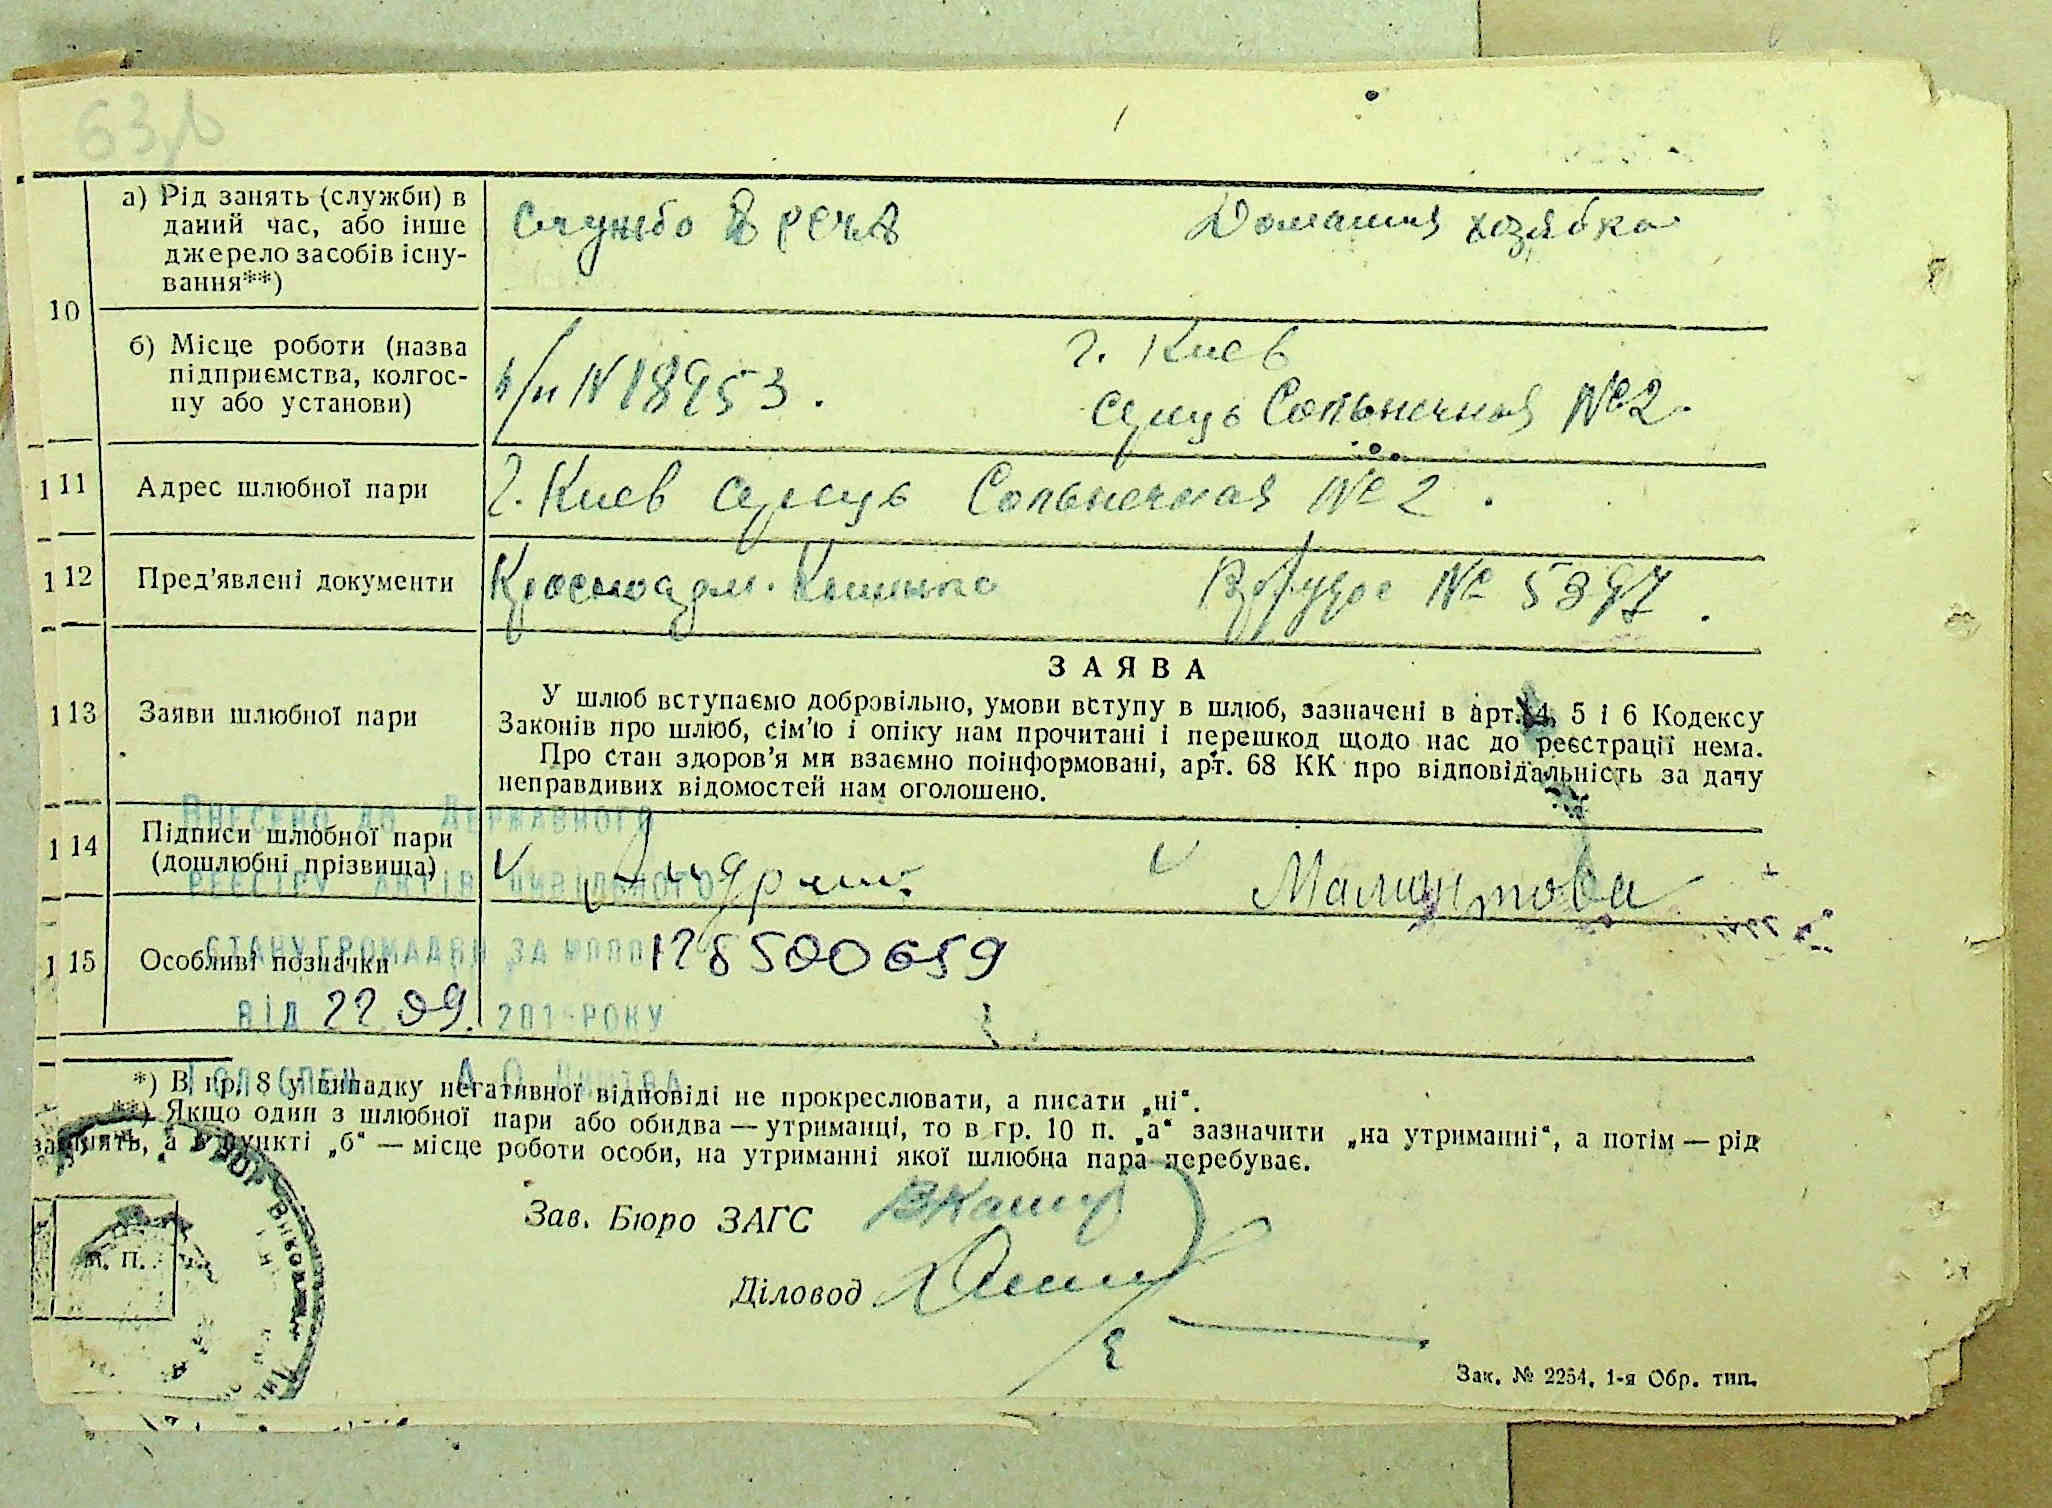 63
10
а) Рід занять (служби) в
даний час, або інше
джерело засобів існу-
вання**)
Служба в РККА
Домашняя хозяйка
б) Місце роботи (назва
підприємства, колгос-
пу або установи)
п/п N 18953.
г. Киев
Солынечная № 2.
1 11
Адрес шлюбної пари
г. Киев Солынечная № 2.
1 12
Пред’явлені документи
Красноарм. Книшка
№ 5397.
1 13
Заяви шлюбної пари
ЗАЯВА
У шлюб вступаємо добровільно, умови вступу в шлюб, зазначені в арт. 4, 5 і 6 Кодексу
Законів про шлюб, сім’ю і опіку нам прочитані і перешкод щодо нас до реєстрації нема.
Про стан здоров’я ми взаємно поінформовані, арт. 68 КК про відповідальність за дачу
неправдивих відомостей нам оголошено.
1 14
Підписи шлюбної пари
(дошлюбні прізвища)
1 15
Особливі позначки
ВНЕСЕНО ДО ДЕРЖАВНОГО
РЕЄСТРУ АКТІВ ЦИВІЛЬНОГО
СТАНУ ГРОМАДЯН ЗА
128500659
ВІД 22.09. 201 РОКУ
*) В гр. 8 у випадку негативної відповіді не прокреслювати, а писати „ні“.
**) Якщо один з шлюбної пари або обидва — утриманці, то в гр. 10 п. „а“ зазначити „на утриманні“, а потім — рід
занять, а в пункті „б“ — місце роботи особи, на утриманні якої шлюбна пара перебуває.
Зав. Бюро ЗАГС
Діловод
М. П.
Зак. № 2254, 1-я Обр. тип.